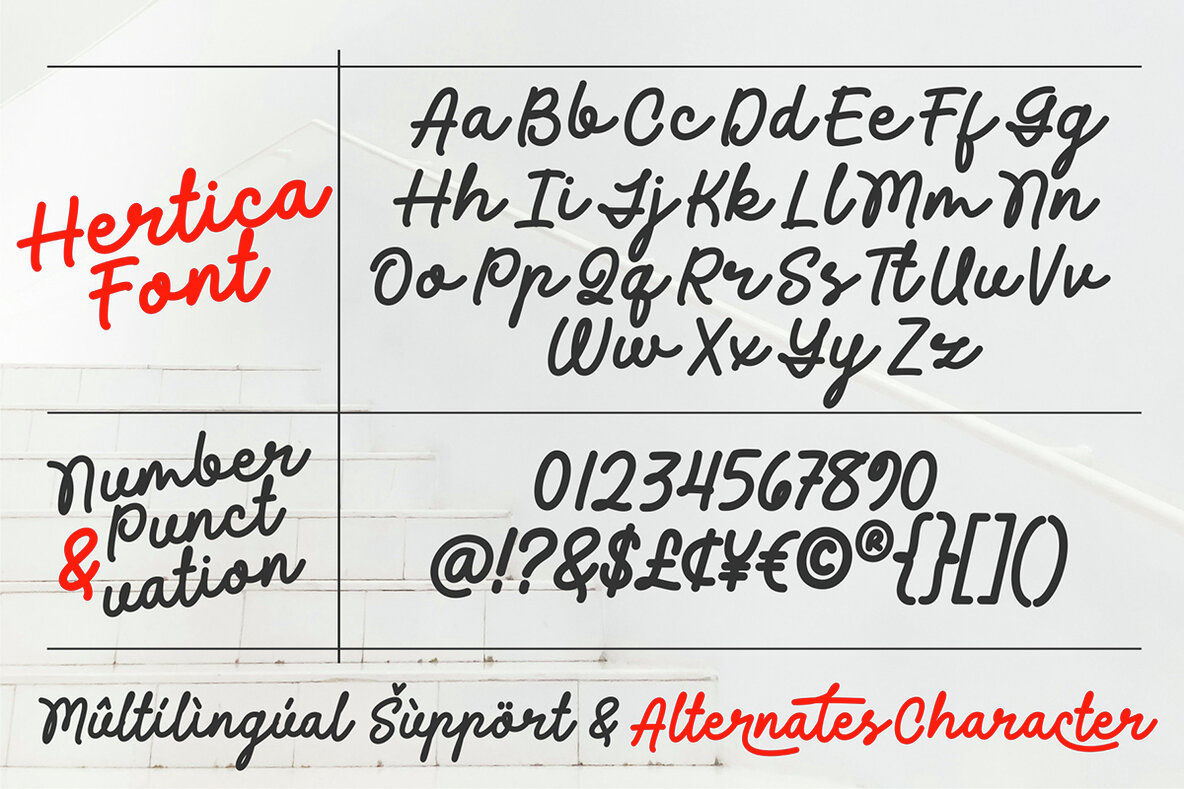 Hertica
Font
Aa Bb Cc Dd Ee Ff Gg
Hh Ii Jj Kk Ll Mm Nn
Oo Pp Qq Rr Ss Tt Uu Vv
Ww Xx Yy Zz
Number
& Punct
uation
01234567890
@!?&$£¢¥€©®{}[]()
Mûltílìngúal Šùppört & Alternates Character